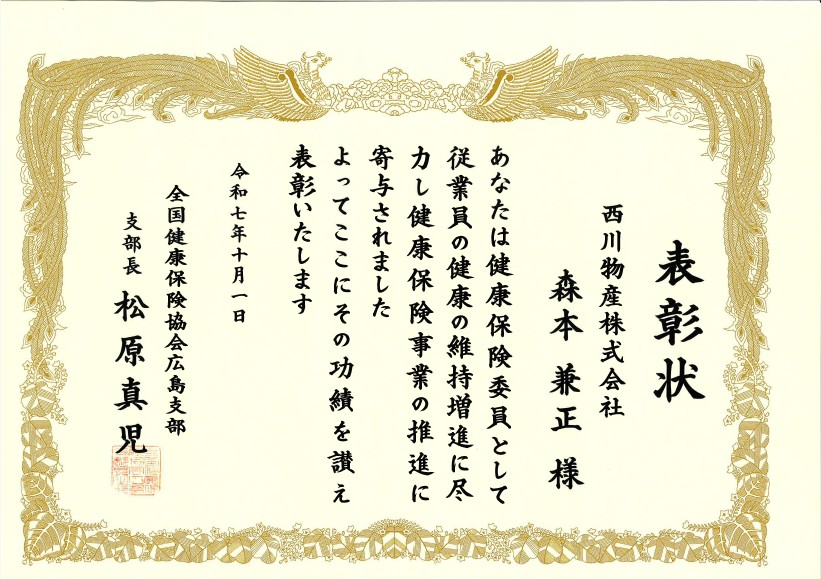 表彰状
西川物産株式会社
森本兼正 様
あなたは健康保険委員として
従業員の健康の維持増進に尽
力し健康保険事業の推進に
寄与されました
よってここにその功績を讃え
表彰いたします
令和七年十月一日
全国健康保険協会広島支部
支部長 松原真児